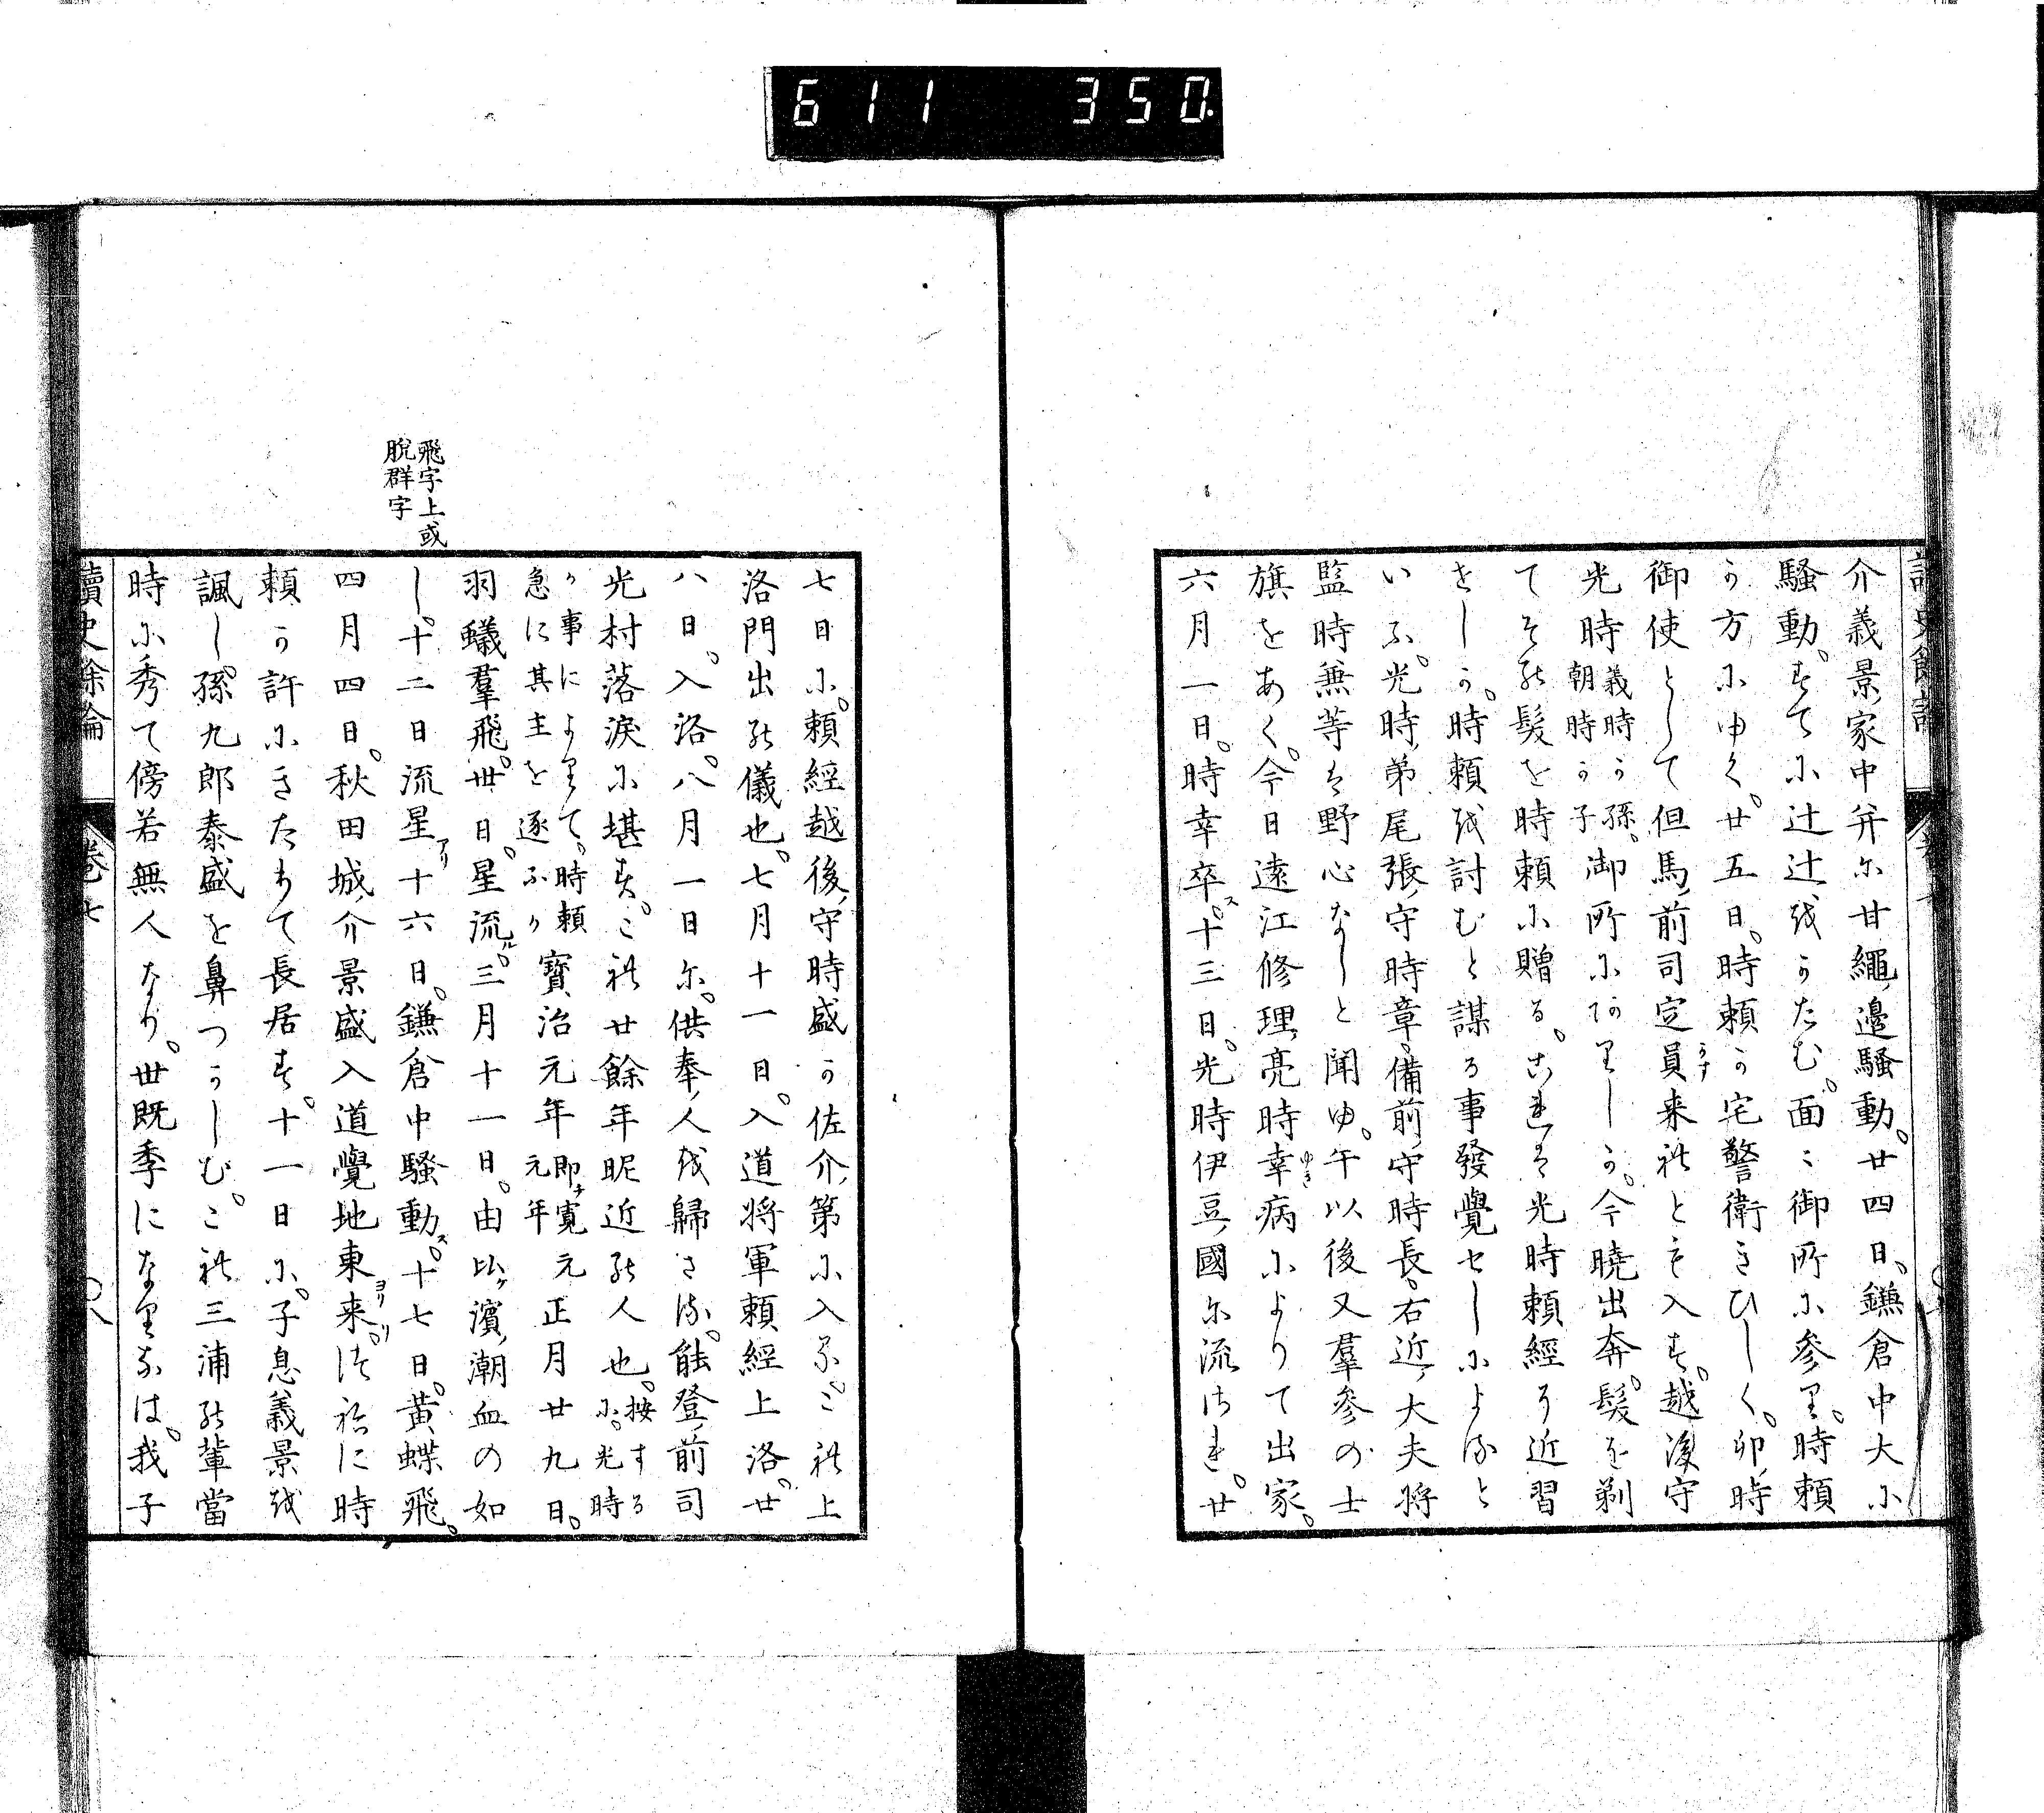 611 350.
介義景、家中并に甘繩、邊騷動。廿四日、鎌倉中大に
騷動。すてに辻辻をかたむ。面々御所に參り。時頼
か方に申く。廿五日。時頼か宅警衛きひしく。卯、時、
御使として但馬、前司定員来れとも入す。越後守
光時義時か孫。朝時か子御所にありしか。今曉出奔。髮を剃
てその髮を時頼に贈る。これは光時頼經か近習
せしか。時頼を討むと謀る事發覺せしによると
いふ。光時、弟尾張、守時章。備前、守時長。右近、大夫将
監時兼等は野心なしと聞ゆ。午以後又羣參の士
旗をあく。今日遠江修理、亮時幸病によりて出家。
六月一日。時幸卒ス。十三日。光時伊豆、國に流され。廿
七日に。頼經越後、守時盛か佐介、第に入る。これ上
洛門出の儀也。七月十一日。入道将軍頼經上洛。廿
八日。入洛。八月一日に。供奉、人を歸さる。能登、前司
光村落涙に堪す。これ廿餘年昵近の人也。按するに。光時
か事によりて。時頼急に其主を逐ふか寶治元年即チ寛元年元正月廿九日。
羽蟻羣飛。丗日。星流ル。三月十一日。由比ヶ濱、潮血の如
し。十二日流星アリ十六日。鎌倉中騷動ス。十七日。黄蝶飛。
飛字上或
脱群字
四月四日。秋田城、介景盛入道覺地東ヨリ来リ。つねに時
頼か許にきたりて長居す。十一日に。子息義景を
諷し。孫九郎泰盛を鼻つかしむ。これ三浦の輩當
時に秀て傍若無人なり。世既季になりなは。我子
讀史餘論 卷七 〇八